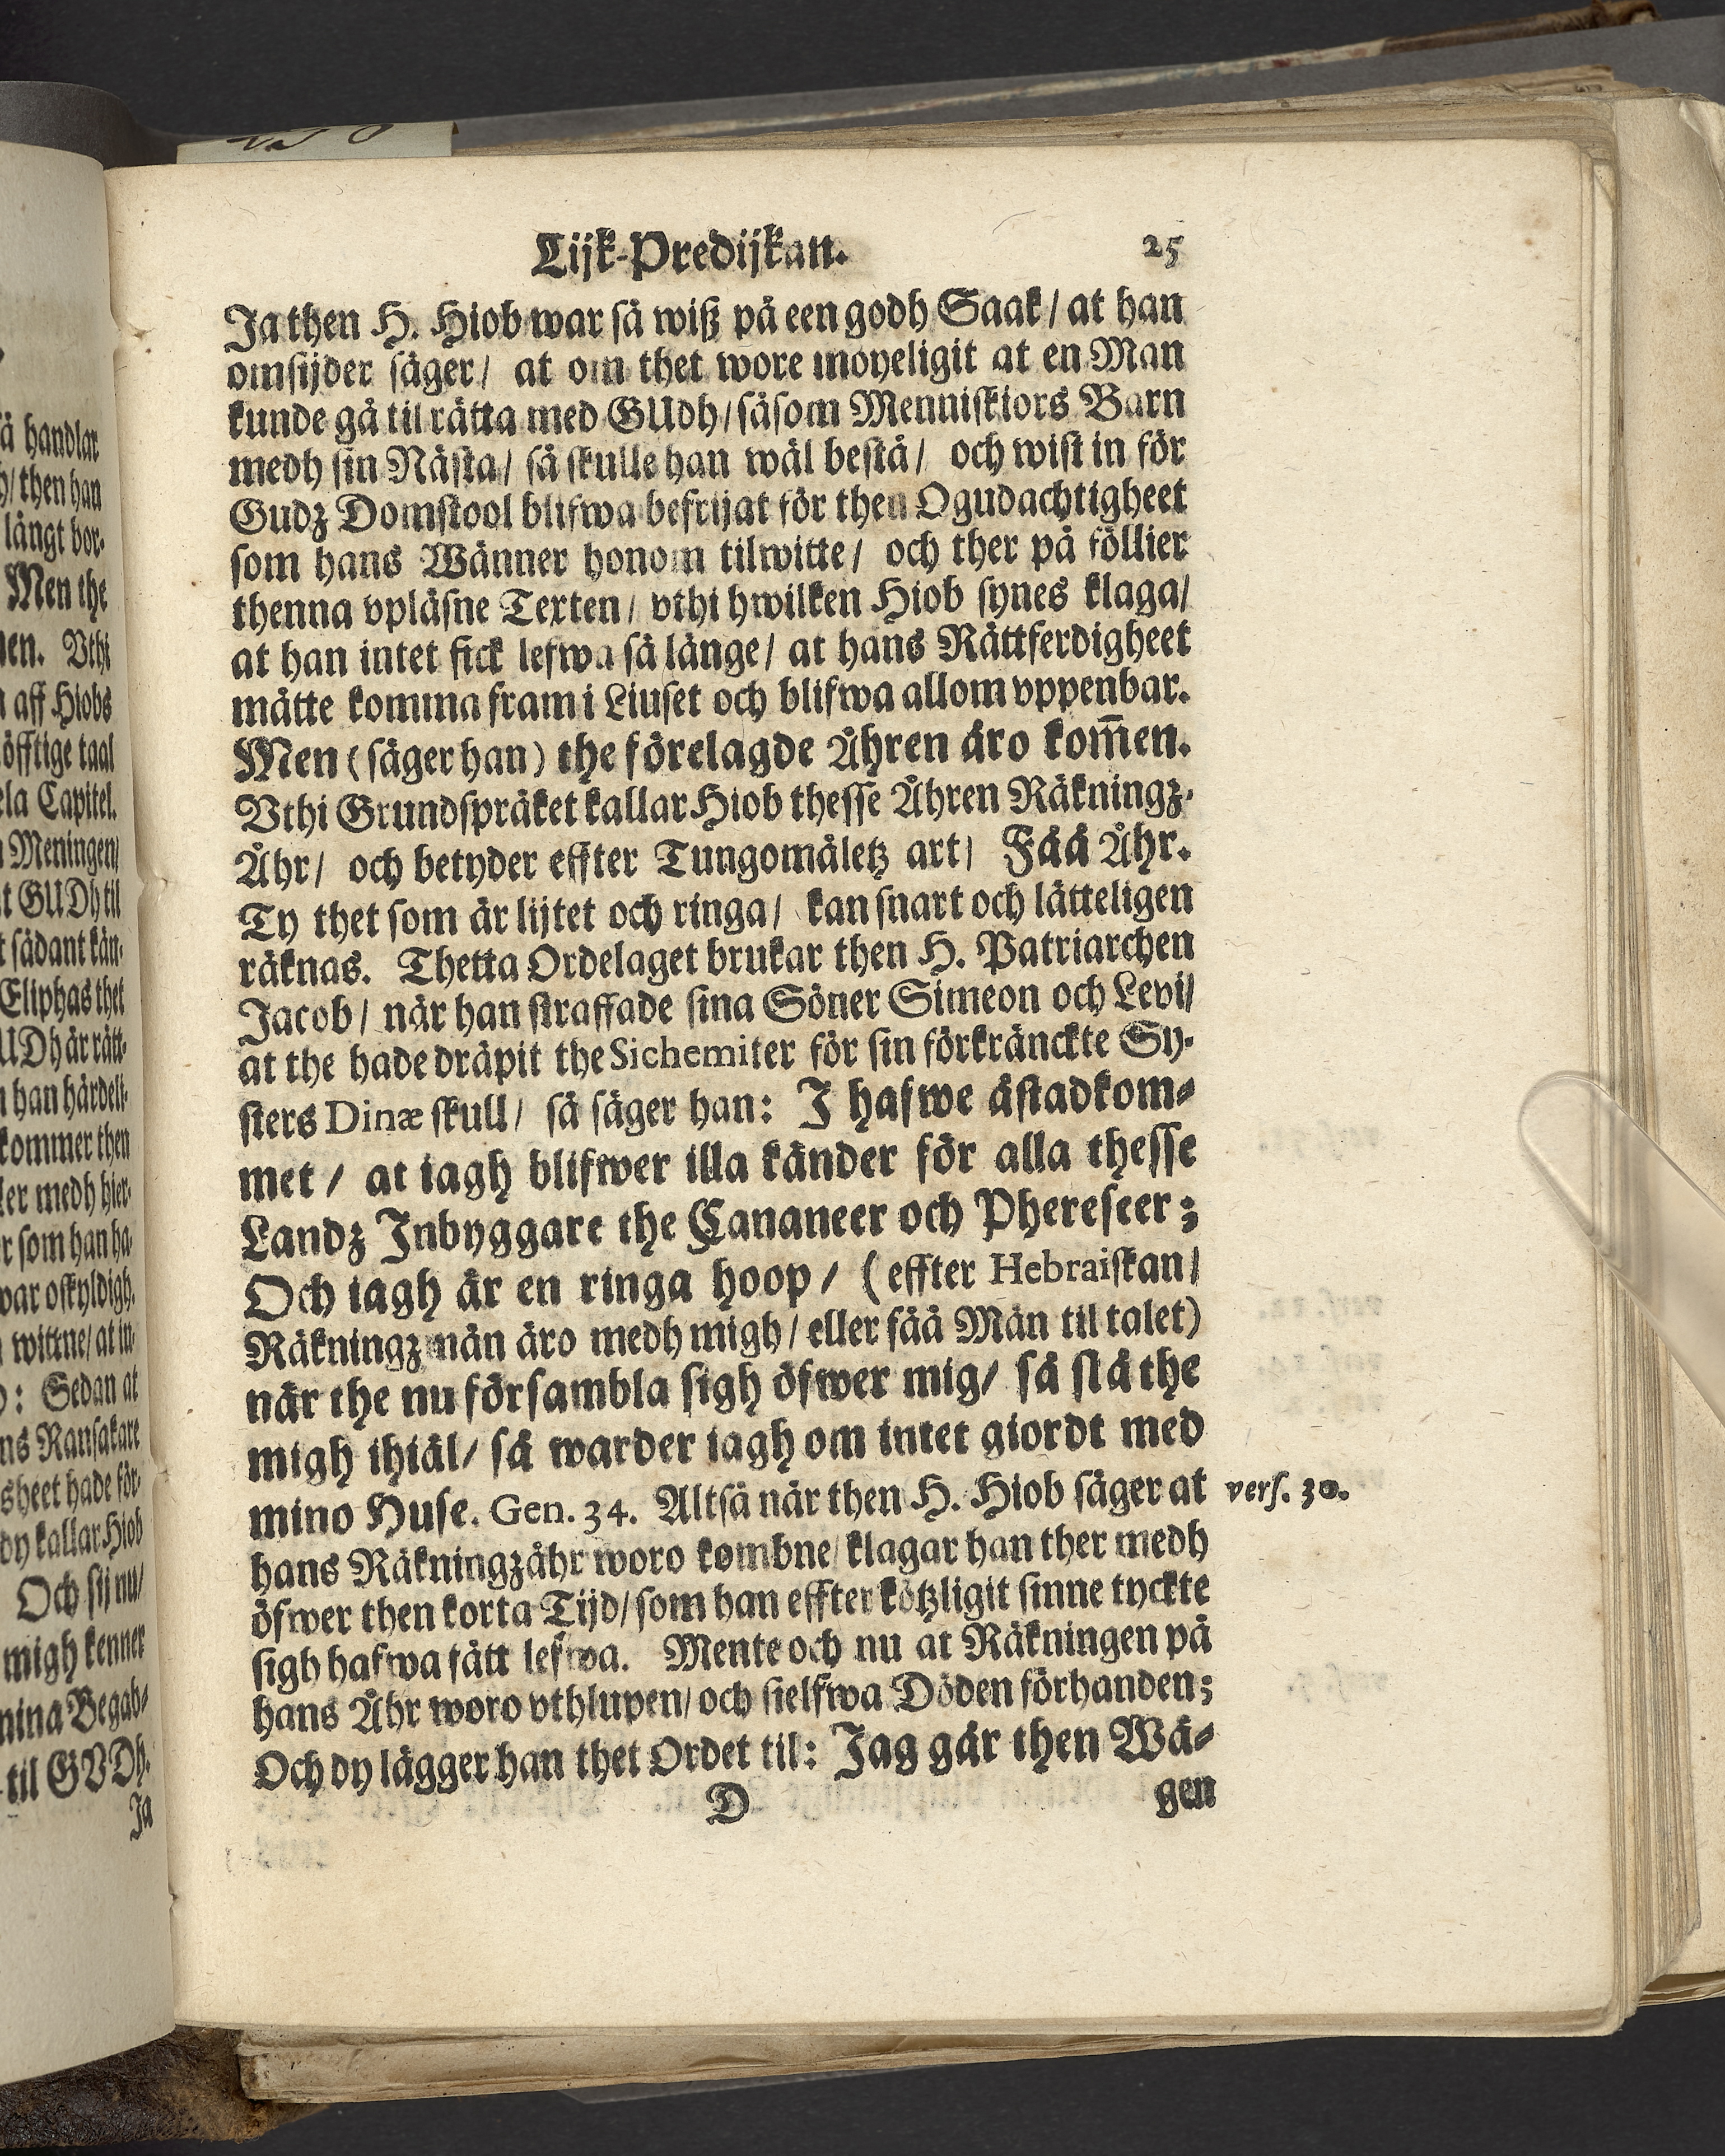 Lijk-Predijkan. 25
Ja then H. Hiob war så wiß på een godh Saak / at han
omsijder säger / at om thet wore moyeligit at en Man
kunde gå til rätta med GUdh / såsom Menniskiors Barn
medh sin Nästa / så skulle han wäl bestå / och wist in för
Gudz Domstool blifwa befrijat för then Ogudachtigheet
som hans Wänner honom tilwitte / och ther på föllier
thenna vpläsne Texten / vthi hwilken Hiob synes klaga /
at han intet fick lefwa så länge / at hans Rättferdigheet
måtte komma fram i Liuset och blifwa allom vppenbar.
Men ( säger han ) the förelagde Åhren äro kom̅en.
Vthi Grundspråket kallar Hiob thesse Åhren Räkningz-
Åhr / och betyder effter Tungomåletz art / Fåå Åhr.
Ty thet som är lijtet och ringa / kan snart och lätteligen
räknas. Thetta Ordelaget brukar then H. Patriarchen
Jacob / när han straffade sina Söner Simeon och Levi /
at the hade dräpit the Sichemiter för sin förkränckte Sy-
sters Dinæ skull / så säger han: J hafwe åstadkom-
met / at iagh blifwer illa känder för alla thesse
Landz Inbyggare the Cananeer och Phereseer ;
Och iagh är en ringa hoop / ( effter Hebraiskan /
Räkningzmän äro medh migh / eller fåå Män til talet )
när the nu försambla sigh öfwer mig / så slå the
migh ihiäl / så warder iagh om intet giordt med
mino Huse. Gen. 34. Altså när then H. Hiob säger at vers. 30.
hans Räkningzåhr woro kombne / klagar han ther medh
öfwer then korta Tijd / som han effter kötzligit sinne tyckte
sigh hafwa fått lefwa. Mente och nu at Räkningen på
hans Åhr woro vthlupen / och sielfwa Döden förhanden ;
Och dy lägger han thet Ordet til : Jag går then Wä-
D gen
å handlar
then han
långt bor-
Men the
Vthi
aff Hiobs
taal
Capitel.
Meningen /
GUDh til
sådant kän-
Eliphas thet
är rätt-
han hårdeli-
kommer then
medh hier-
som han ha-
war oskyldigh.
wittne / at in-
: Sedan at
Ransakare
hade för-
dy kallar Hiob
Och sij nu /
migh kenner
mina Begab-
til GVDh.
Ja